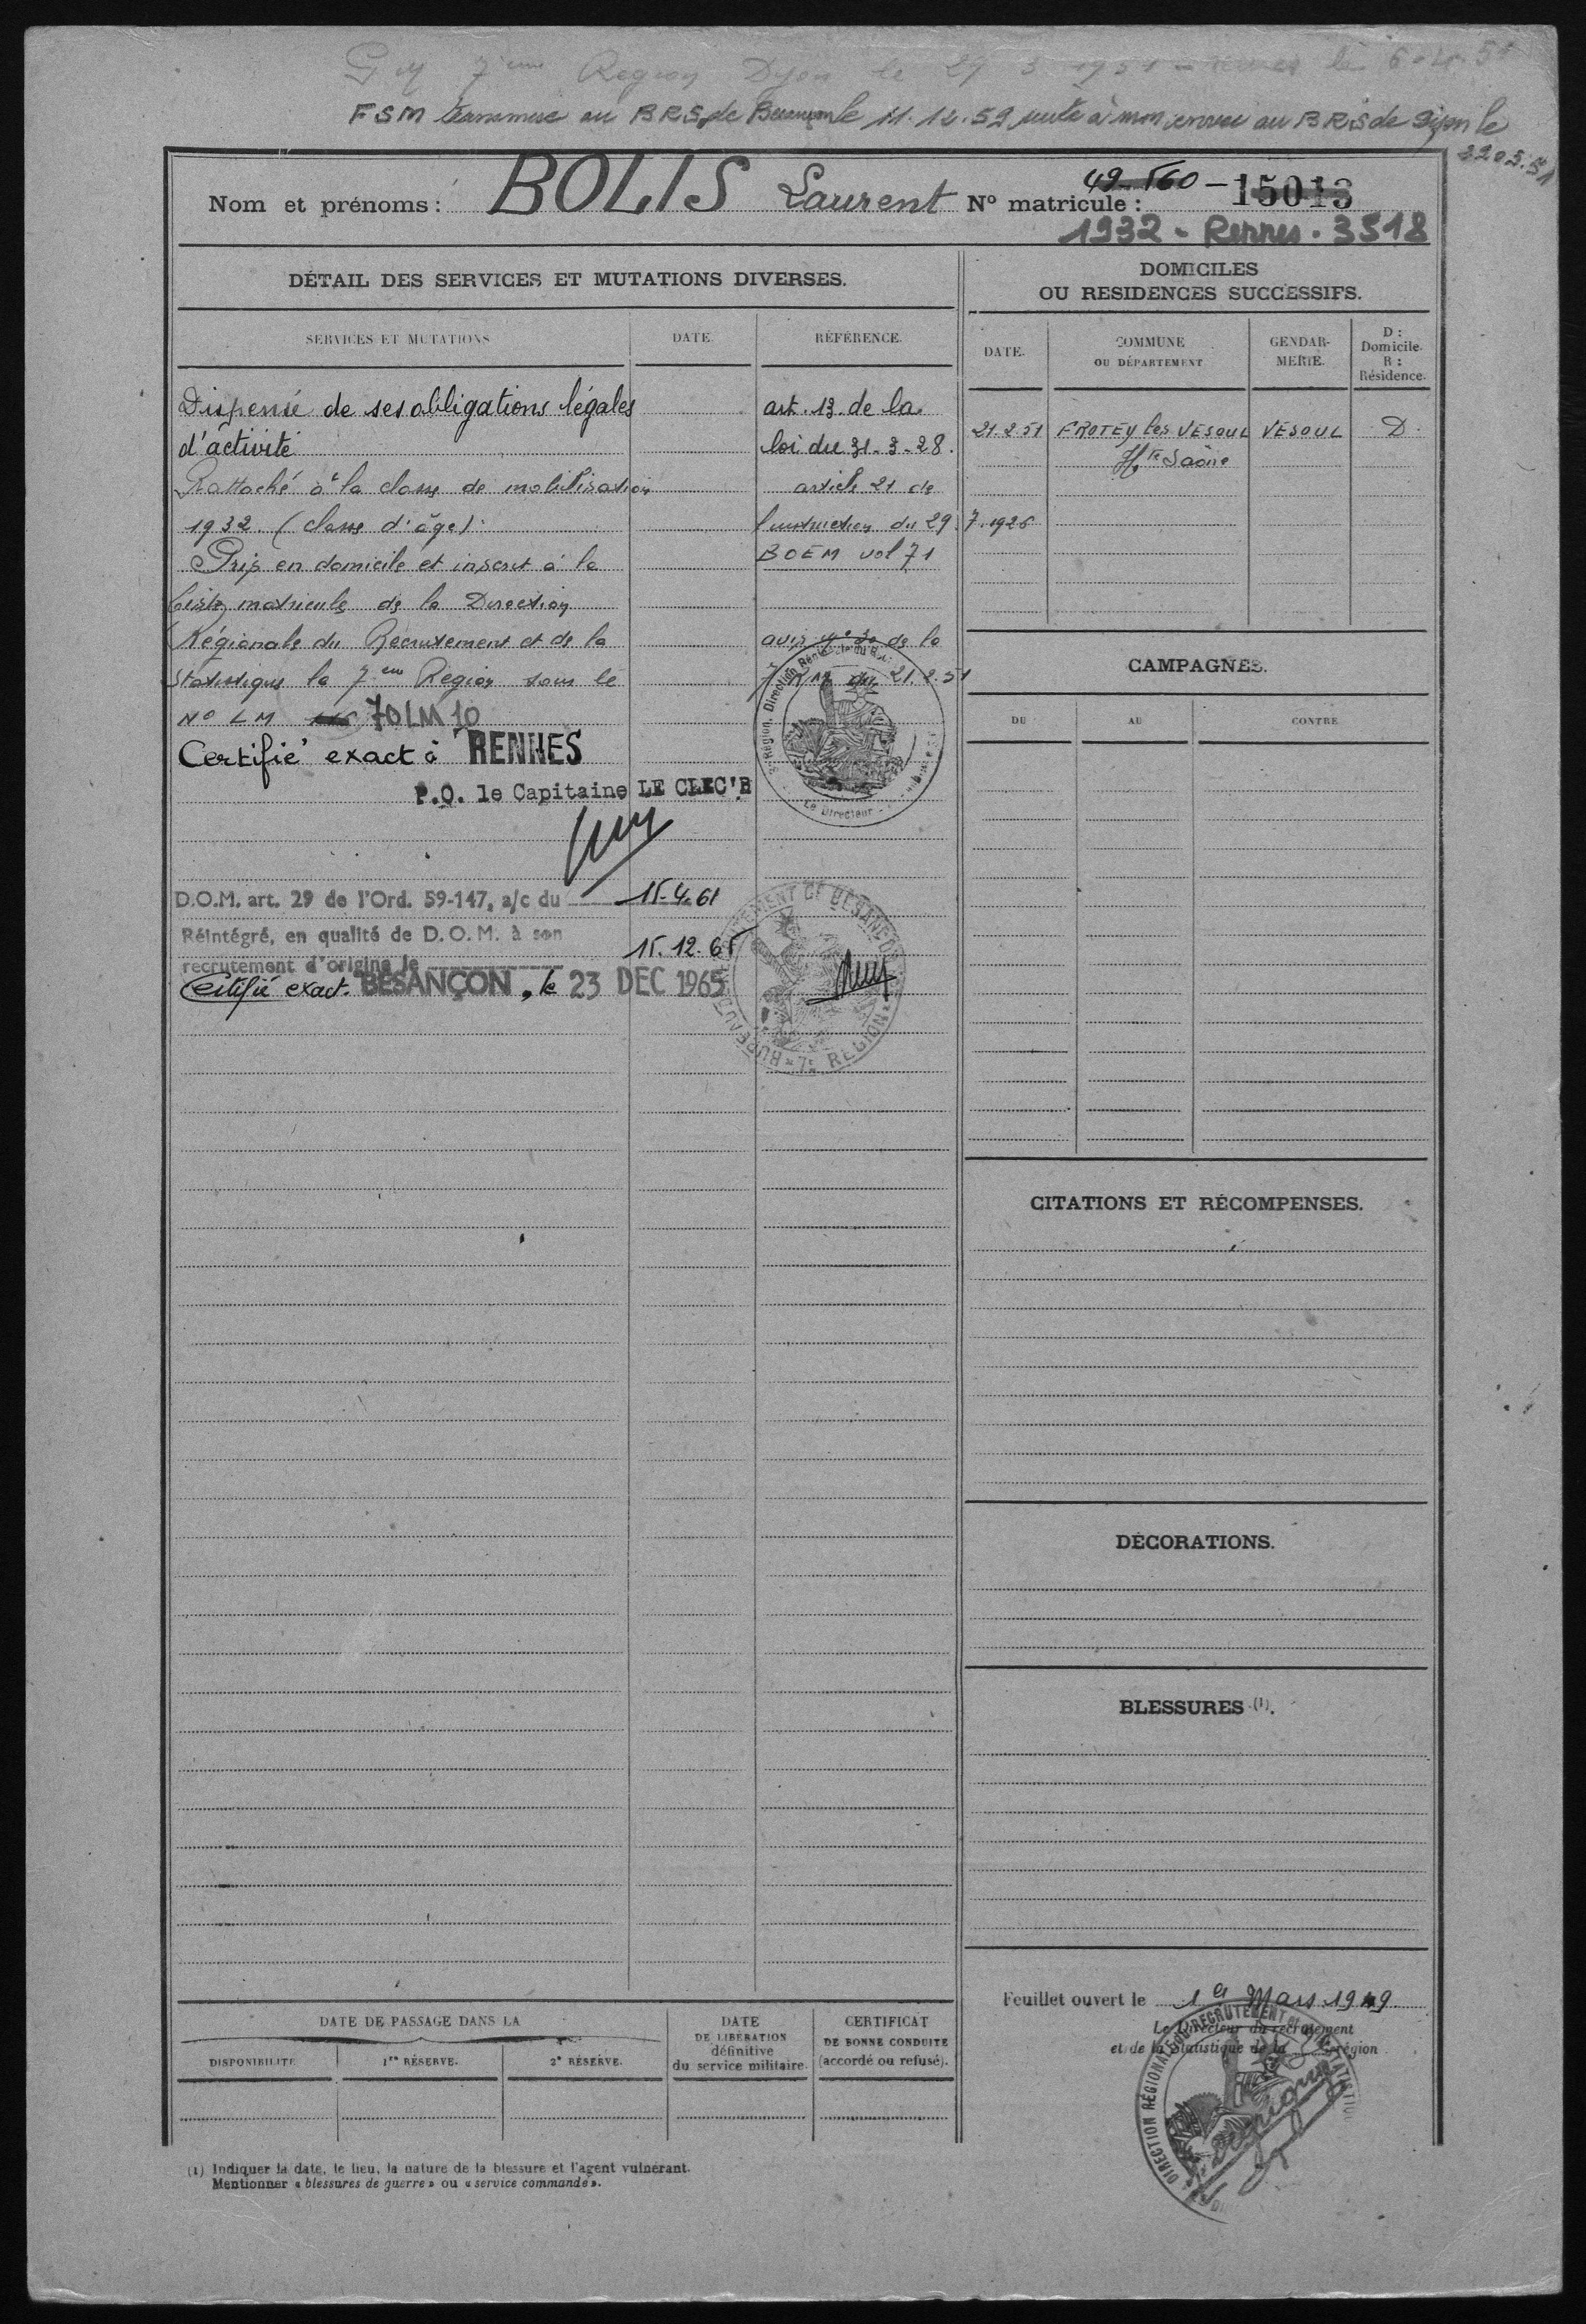 7ème Region Dijon le 29 3 1951 le 6.4.51
FSM au BRS de Besançon le 11.12.52 au BRS de Dijon le
22.03.51
Nom et prénoms : BOLIS Laurent Nº matricule : 49-560 - 15013
1932 - Rennes - 3518
DÉTAIL DES SERVICES ET MUTATIONS DIVERSES.
SERVICES ET MUTATIONS DATE. RÉFÉRENCE.
Dispensé de ses obligations légales art. 13 de la
d'activité loi du 31-3-28.
Rattaché à la classe de mobilisation article 21 de
1932 (classe d'âge). l'instruction du 29.7.1926
Pris en domicile et inscrit à la BOEM vol 71
liste matricule de la Direction
Régionale du Recrutement et de la avis nº 30 de la
Statistique la 7ème Région sous le 7 RM du 21.2.51
Nº LM 70LM10
Certifié exact à RENNES
P.O. le Capitaine LE CLEC'H
D.O.M. art. 29 de l'Ord. 59-147, a/c du 15-4-61
Réintégré, en qualité de D.O.M. à son
recrutement d'origine le 15.12.65
Certifié exact. BESANÇON, le 23 DEC 1965
Région. Direction Régionale du
Le Directeur
BUREAU DE RECRUTEMENT DE BESANÇON
7e REGION
DOMICILES
OU RESIDENCES SUCCESSIFS.
DATE. COMMUNE OU DÉPARTEMENT GENDARMERIE. D : Domicile. R : Résidence.
21.2.51 FROTEY les VESOUL VESOUL D.
Hte Saône
CAMPAGNES.
DU AU CONTRE
CITATIONS ET RÉCOMPENSES.
DÉCORATIONS.
BLESSURES (1).
Feuillet ouvert le 1er Mars 1949.
Le Directeur du recrutement
et de la Statistique de la région
DIRECTION RÉGIONALE DU RECRUTEMENT et de la STATISTIQUE
DATE DE PASSAGE DANS LA
DISPONIBILITÉ 1re RÉSERVE. 2e RÉSERVE.
DATE
DE LIBÉRATION
définitive
du service militaire.
CERTIFICAT
DE BONNE CONDUITE
(accordé ou refusé).
(1) Indiquer la date, le lieu, la nature de la blessure et l'agent vulnérant.
Mentionner « blessures de guerre » ou « service commandé ».